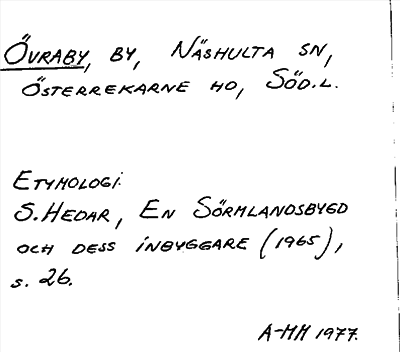 Övraby, by, Näshulta sn,
Österrekarne hd, Söd.l.
Etymologi:
S. Hedar, En Sörmlandsbygd
och dess inbyggare (1965),
s. 26.
A-MH 1977.